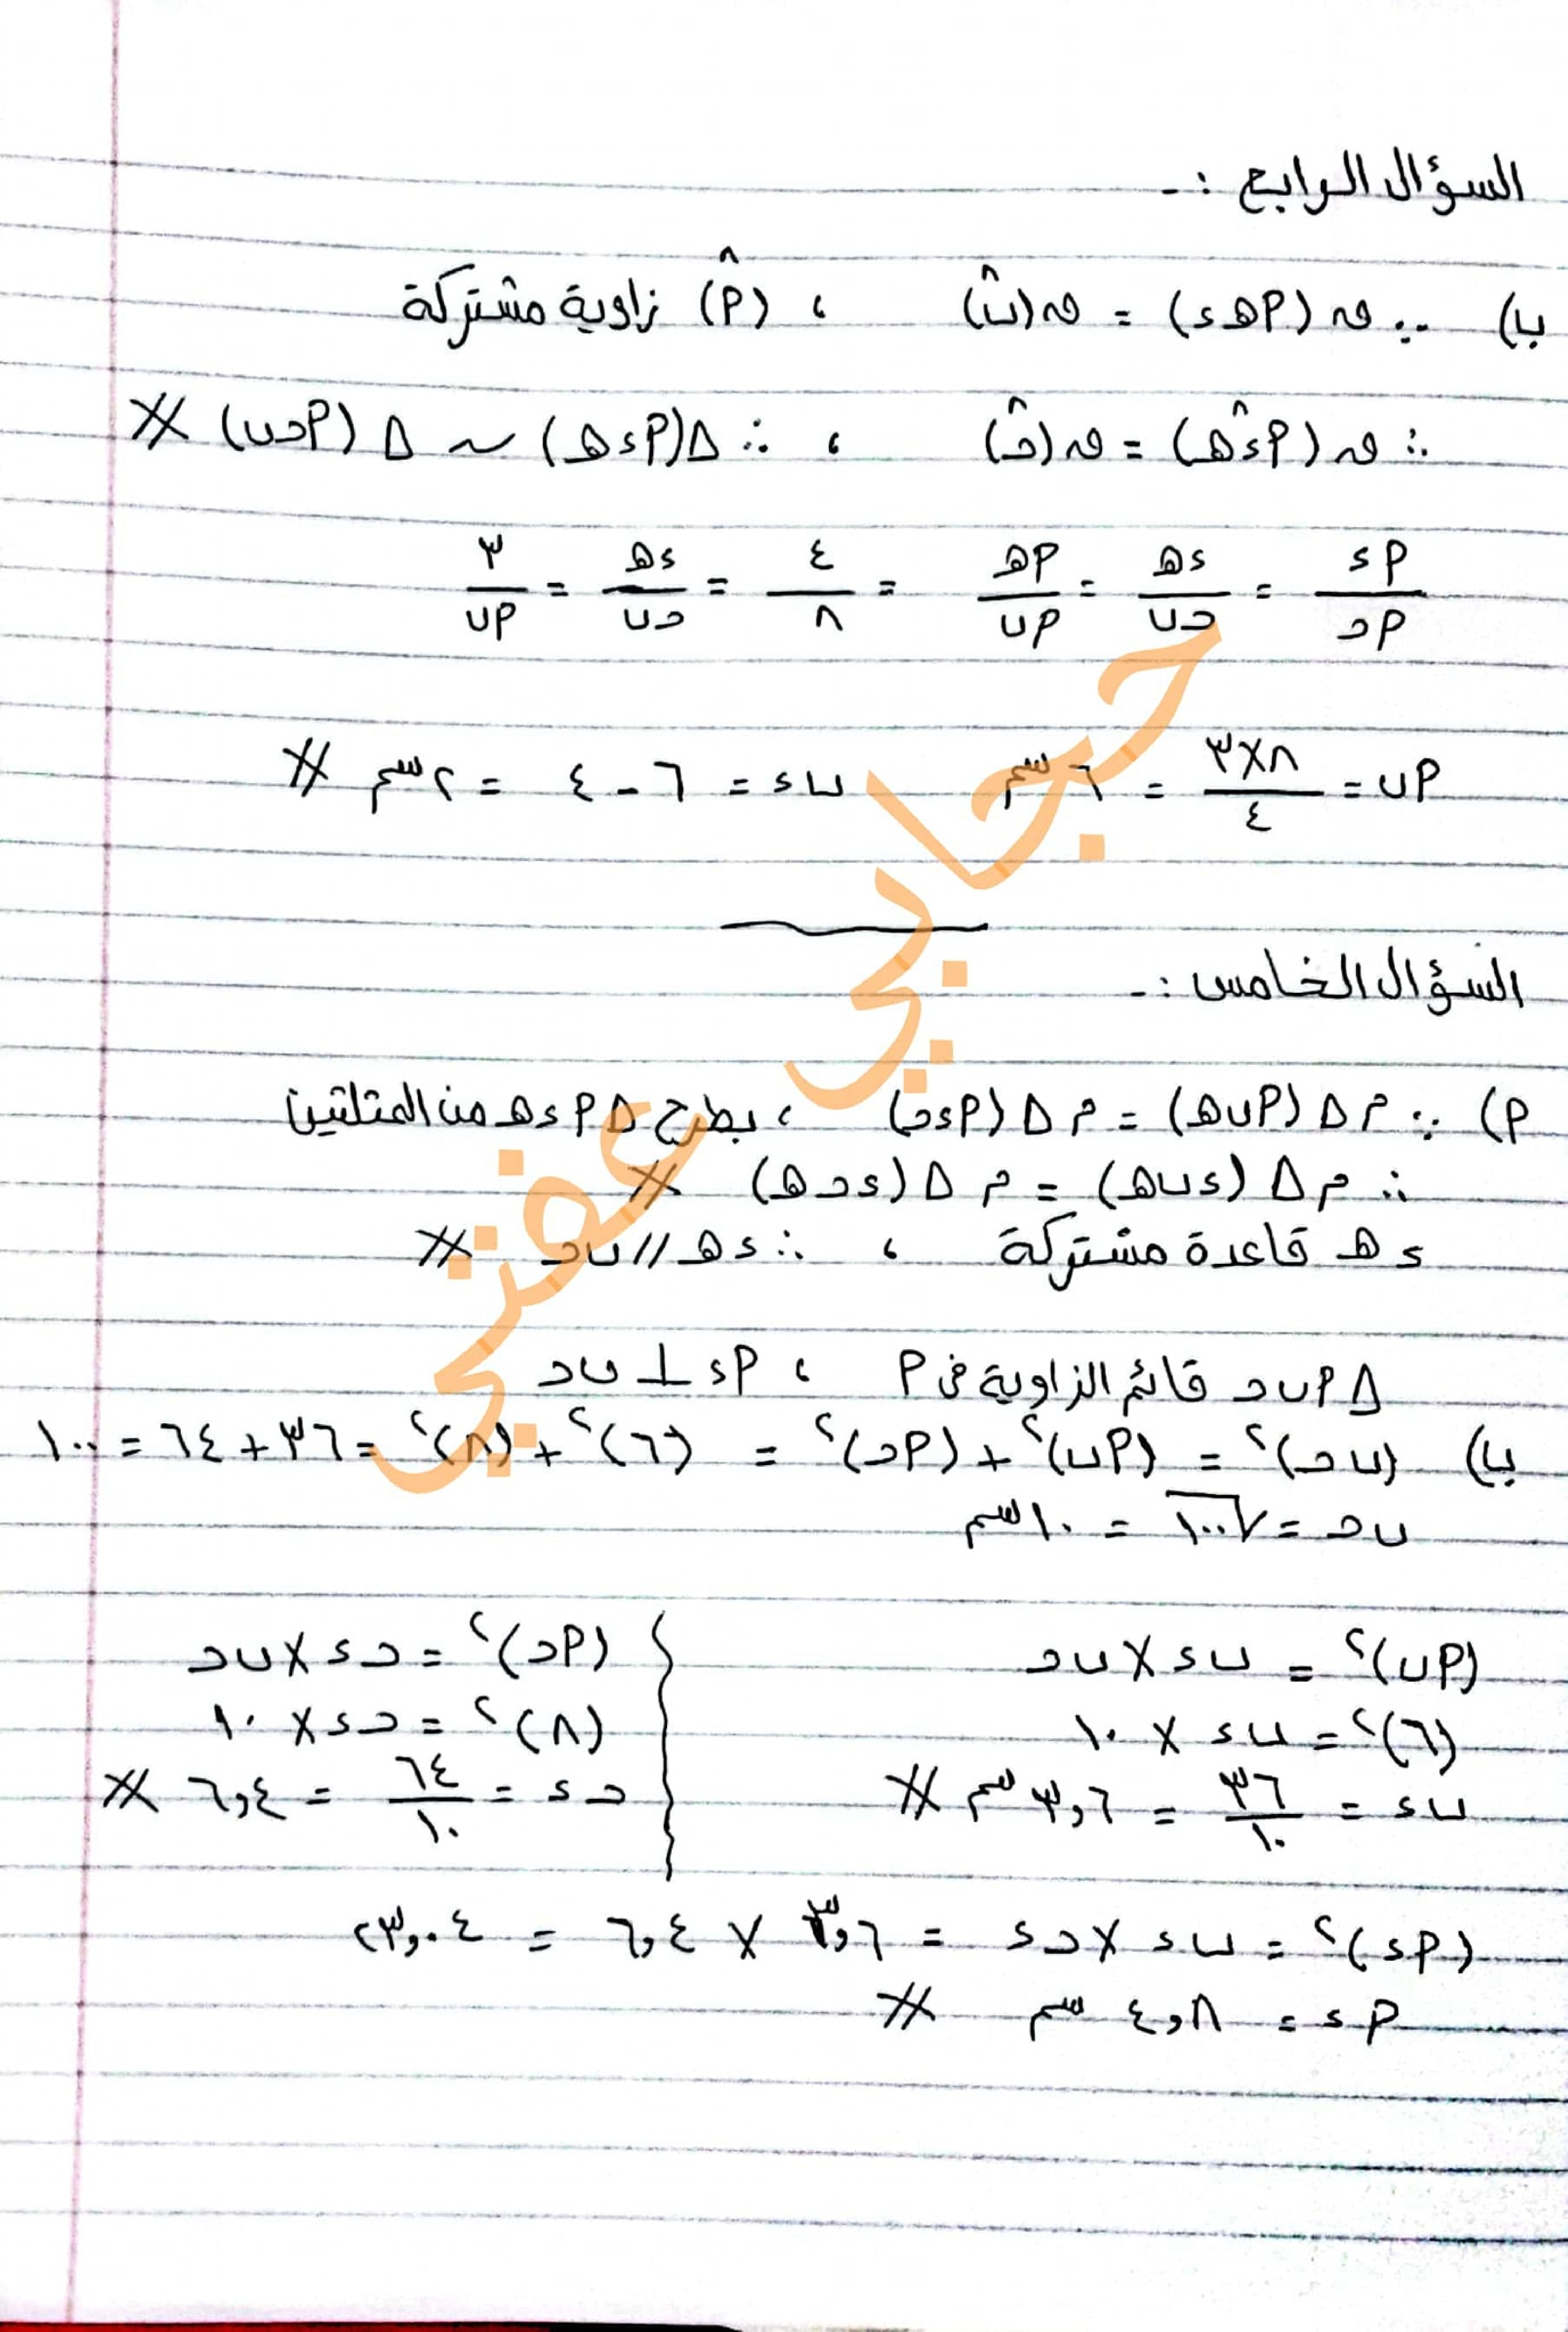 السؤال الرابع :-
ب) ∵ ق (أهـ ء) = ق(بَ) ، (أ̂) زاوية مشتركة
∴ ق (أ ءَ هـ) = ق(جـَ) ، ∴ Δ(أ ء هـ) ~ Δ (أ جـ ب) #
أ ء / أ جـ = ء هـ / جـ ب = أ هـ / أ ب = ٤ / ٨ = ء هـ / جـ ب = ٣ / أ ب
أ ب = ٨×٣ / ٤ = ٦ سم ب ء = ٦ - ٤ = ٢ سم #
السؤال الخامس :-
أ) ∵ م Δ (أ ب هـ) = م Δ (أ ء جـ) ، بطرح Δ أ ء هـ من المثلثين
∴ م Δ (ء ب هـ) = م Δ (ء جـ هـ) #
ء هـ قاعدة مشتركة ، ∴ ء هـ // ب جـ #
Δ أ ب جـ قائم الزاوية في أ ، أ ء ⊥ ب جـ
ب) (ب جـ)² = (أ ب)² + (أ جـ)² = (٦)² + (٨)² = ٣٦ + ٦٤ = ١٠٠
ب جـ = √١٠٠ = ١٠ سم
(أ ب)² = ب ء × ب جـ
(٦)² = ب ء × ١٠
ب ء = ٣٦ / ١٠ = ٣,٦ سم #
(أ جـ)² = جـ ء × ب جـ
(٨)² = جـ ء × ١٠
جـ ء = ٦٤ / ١٠ = ٦,٤ #
(أ ء)² = ب ء × جـ ء = ٣,٦ × ٦,٤ = ٢٣,٠٤
أ ء = ٤,٨ سم #
حجابي عفتي